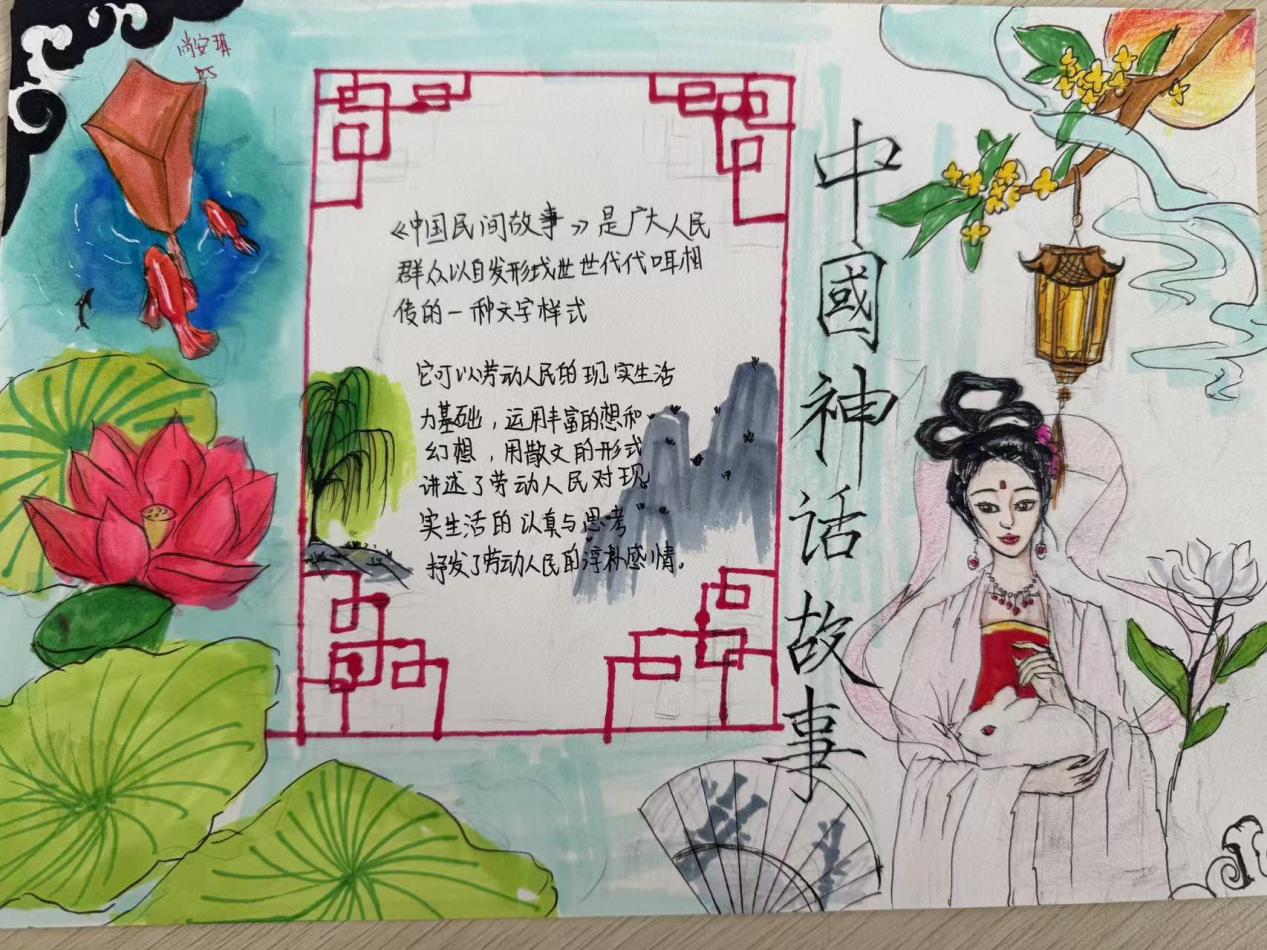 尚安琪
中國神話故事
《中国民间故事》是广大人民
群众以自发形式世世代代口耳相
传的一种文字样式
它可以劳动人民的现实生活
力基础，运用丰富的想和
幻想，用散文的形式
讲述了劳动人民对现
实生活的认真与思考
抒发了劳动人民的淳朴感情。